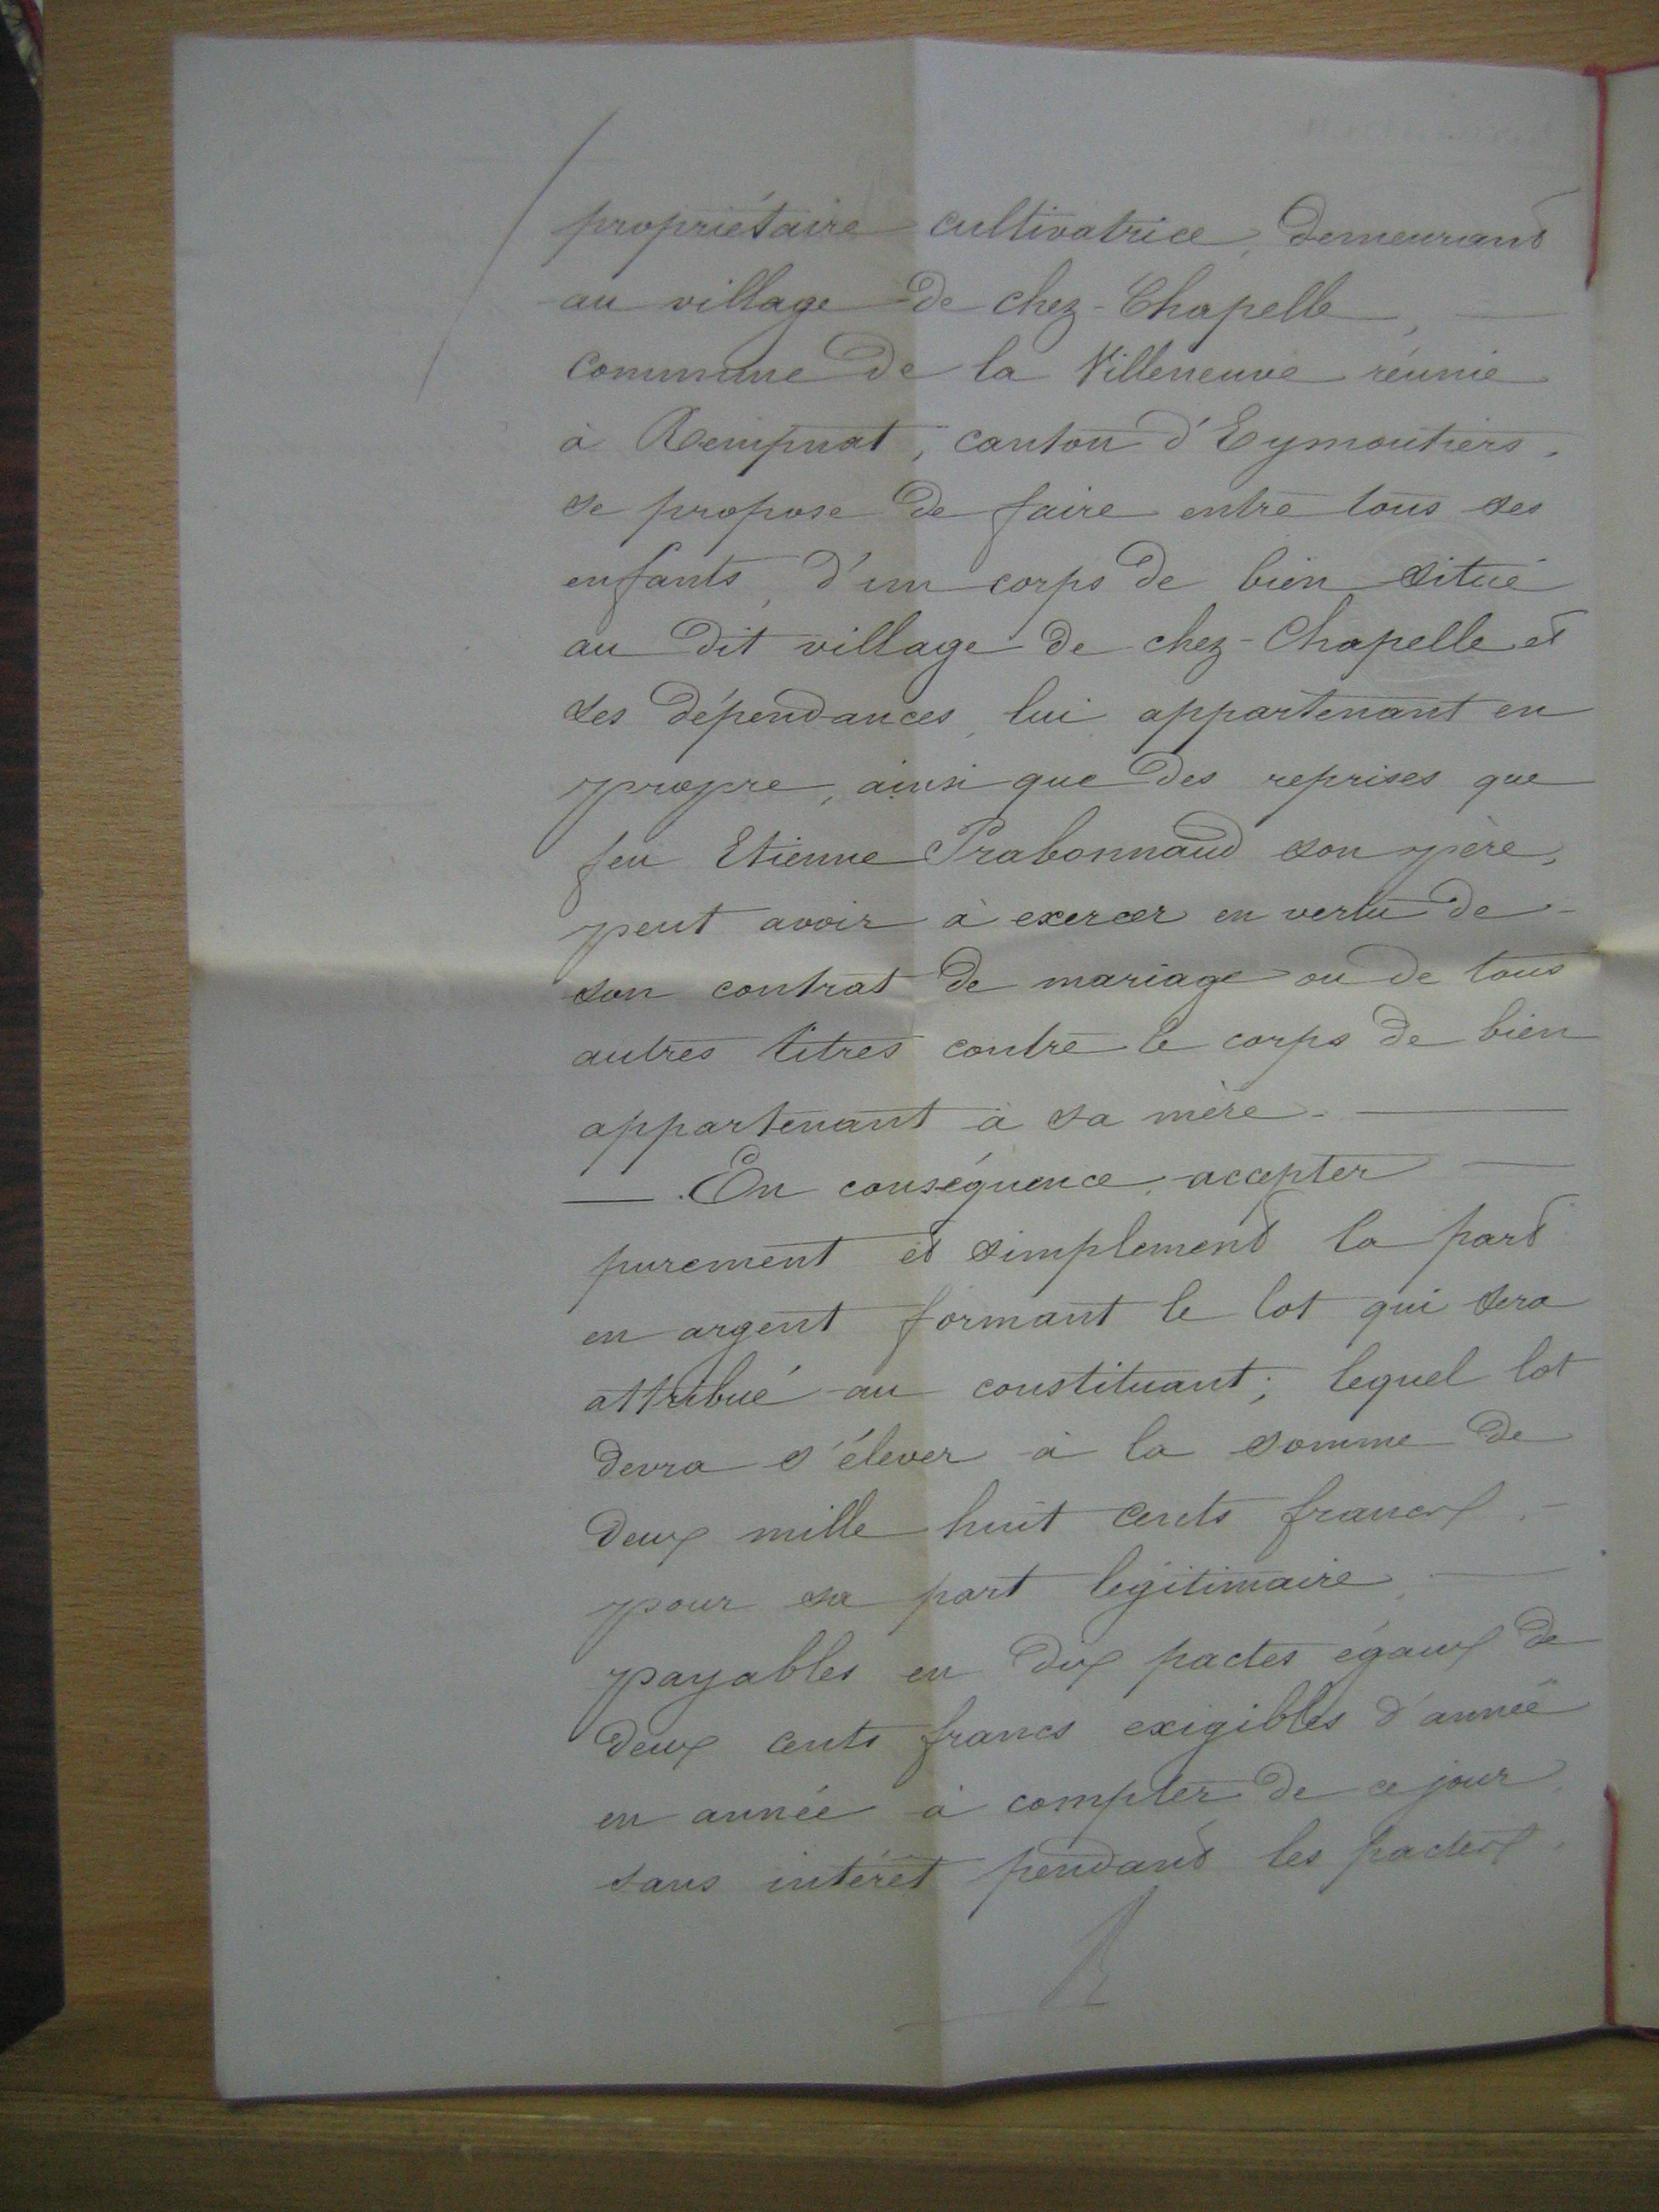 propriétaire cultivatrice, demeurant
au village de chez-Chapelle
commune de la Villeneuve réunie
à Rempnat, canton d'Eymoutiers.
se propose de faire entre tous ses
enfants, d'un corps de bien situé
au dit village de chez-Chapelle et
des dépendances, lui appartenant en
propre, ainsi que des reprises que
feu Etienne Prabonnaud son père,
peut avoir à exercer en vertu de
son contrat de mariage ou de tous
autres titres contre le corps de bien
appartenant à sa mère.
En conséquence, accepter
purement et simplement la part
en argent formant le lot qui sera
attribué au constituant; lequel lot
devra s'élever à la somme de
deux mille huit cents francs.
pour sa part légitimaire.
payables en dix pactes égaux de
deux cents francs exigibles d'année
en année à compter de ce jour,
sans intérêt pendant les pactes.